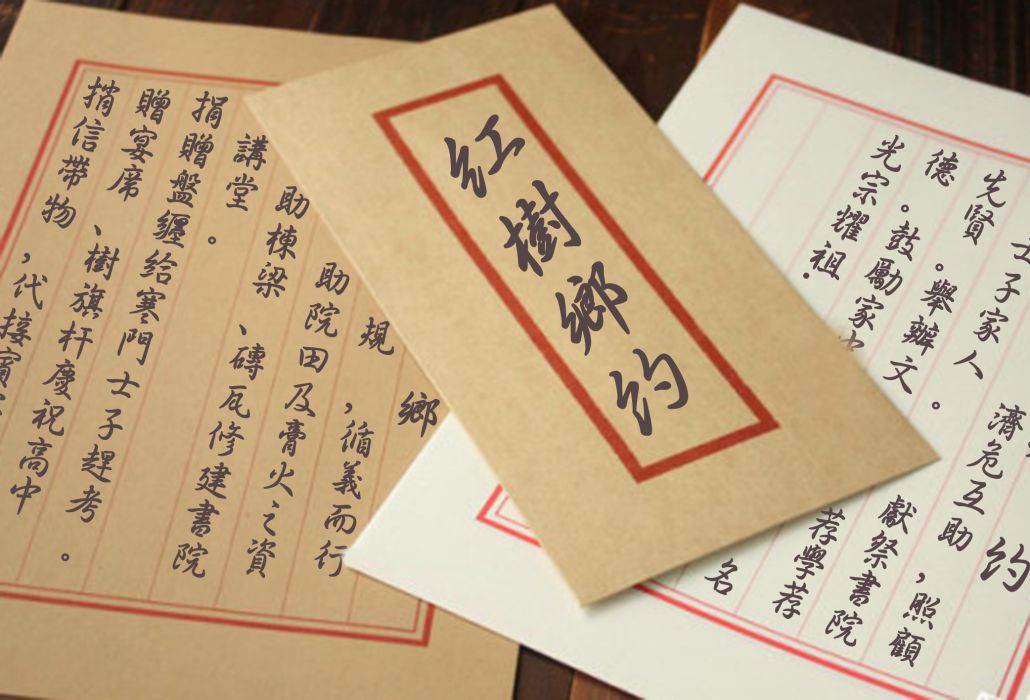 紅樹鄉約
約
濟危互助，照顧
士子家人。獻祭書院
先賢。舉辦文
荐學荐
德。鼓勵家
名
光宗耀祖.
鄉
規，循義而行
助院田及膏火之資
助棟梁、磚瓦修建書院
講堂。
捐贈盤纏給寒門士子趕考。
贈宴席、樹旗杆慶祝高中
捎信帶物，代接賓